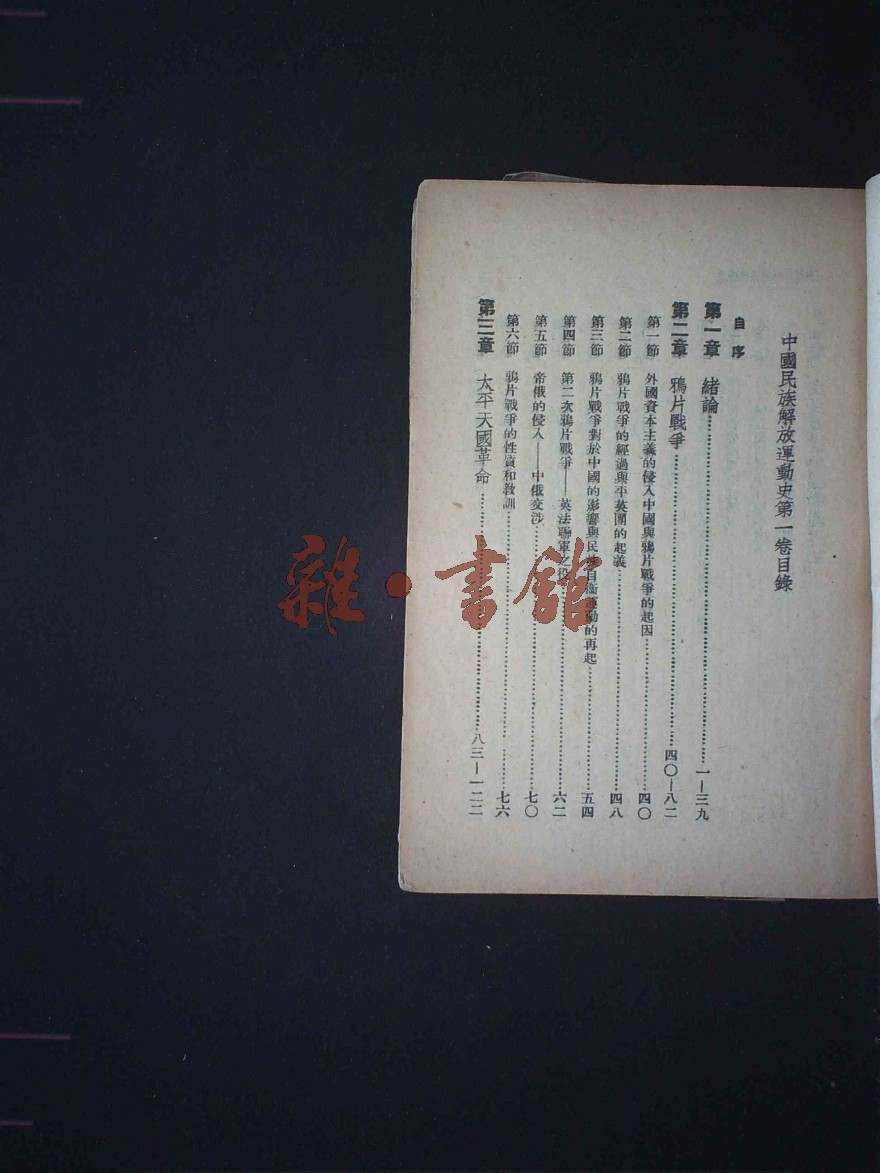 中國民族解放運動史第一卷目錄
自序
第一章 緒論……一—三九
第二章 鴉片戰爭……四〇—八二
第一節 外國資本主義的侵入中國與鴉片戰爭的起因……四〇
第二節 鴉片戰爭的經過與平英團的起義……四八
第三節 鴉片戰爭對於中國的影響與民族自衞運動的再起……五四
第四節 第二次鴉片戰爭——英法聯軍之役……六二
第五節 帝俄的侵入——中俄交涉……七〇
第六節 鴉片戰爭的性質和教訓……七六
第三章 太平天國革命……八三—一二二
雜·書館